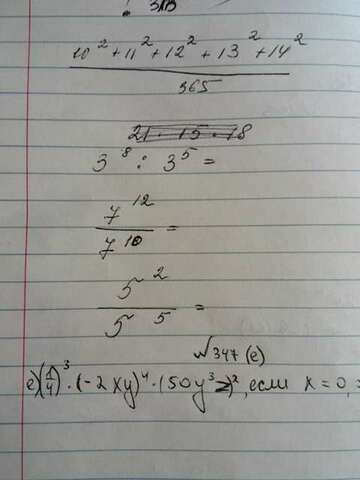 10² + 11² + 12² + 13² + 14²
365
21 · 15 · 18
3⁸ : 3⁵ =
7¹²
7¹⁰ =
5²
5⁵ =
№347 (е)
е) (1/4)³ · (-2xy)⁴ · (50y³z)², если x = 0,